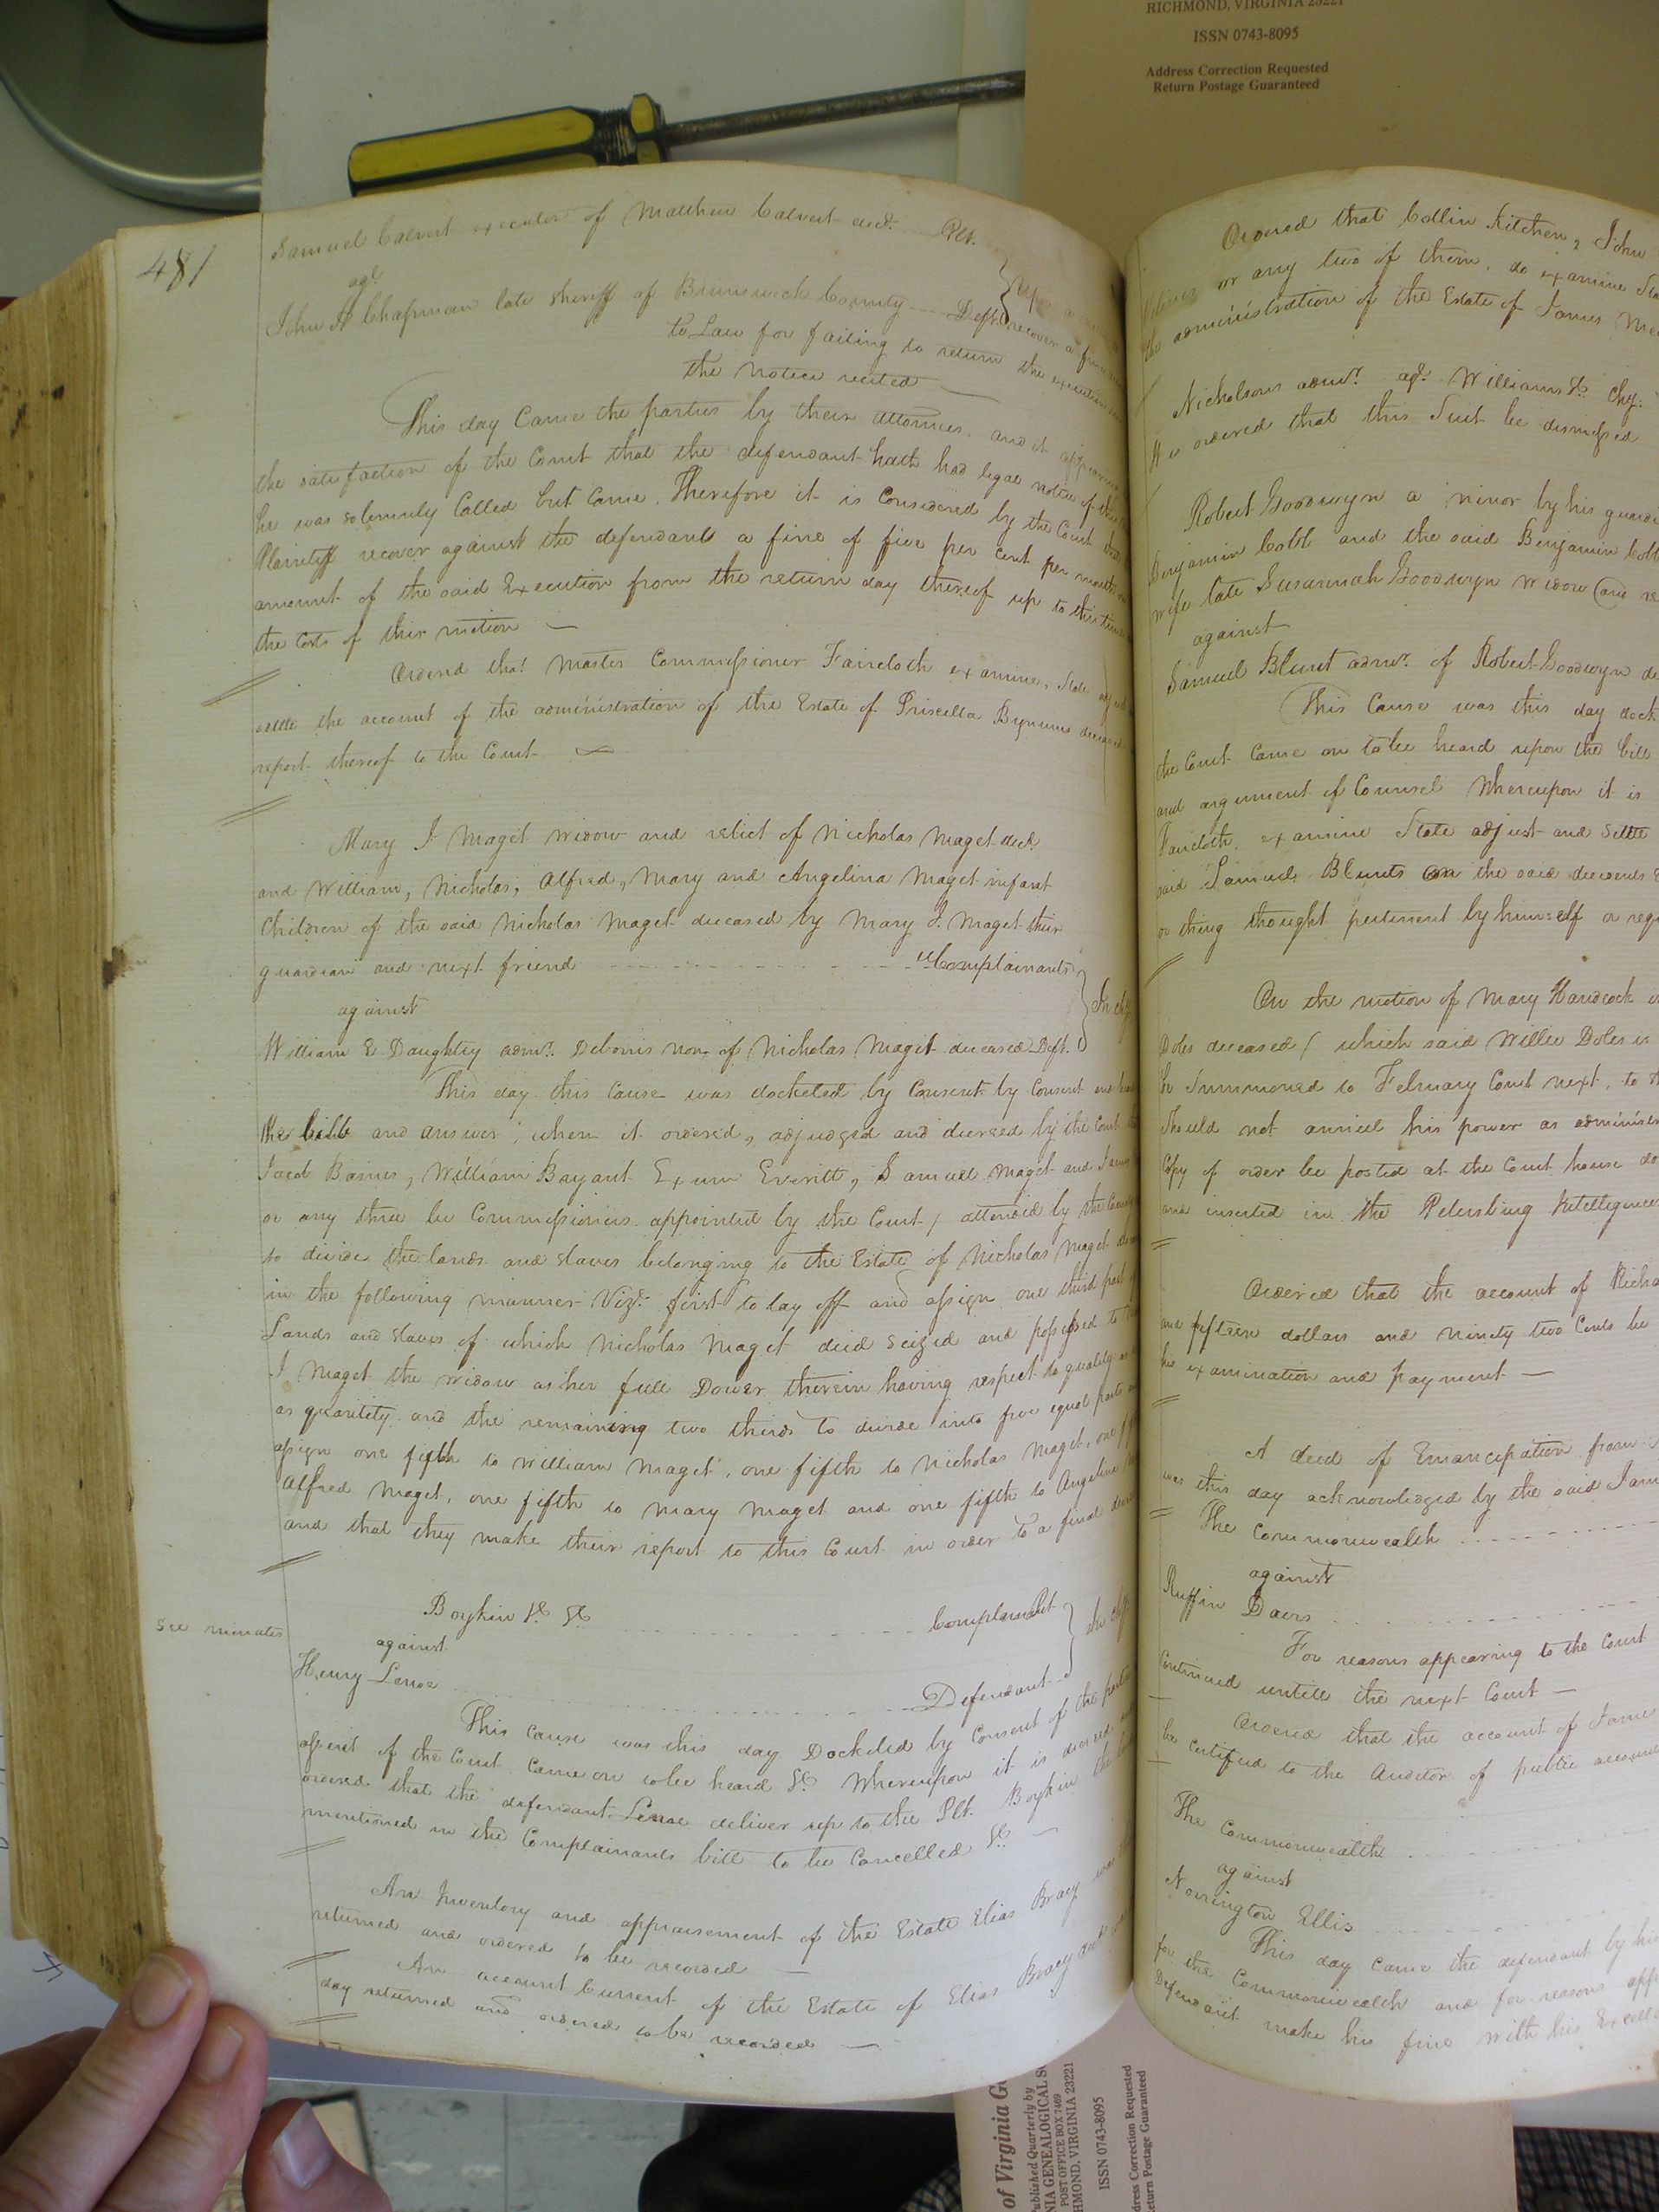 RICHMOND, VIRGINIA 23221
ISSN 0743-8095
Address Correction Requested
Return Postage Guaranteed
481
Samuel Calvert executor of Matthew Calvert decd. Plt.
agt.
John H Chapman late Sheriff of Brunswick County Deft.
Upon a
recover a fine
to Law for failing to return the execution
the notice recited
This day Came the parties by their attornies, and it appearing
the satisfaction of the Court that the defendant hath had legal notice of this
he was solemnly Called but Came. Therefore it is Considered by the Court that
Plaintiff recover against the defendant a fine of five per cent per month
amount of the said Execution from the return day thereof up to this time
the Costs of this motion
Ordered that Master Commissioner Faircloth examine, State adjust
settle the account of the administration of the Estate of Priscilla Bynums deceased
report thereof to the Court
Mary I Maget widow and relict of Nicholas Maget decd.
and William, Nicholas, Alfred, Mary and Angelina Maget infant
Children of the said Nicholas Maget deceased by Mary I. Maget their
guardian and next friend Complainants
against
In chy
William E Daughtry admr. Debonis non of Nicholas Maget deceased Deft.
This day this Cause was docketed by Consent by Consent and
the bill and answer; when it ordered, adjudged and decreed by the Court
Jacob Barnes, William Bryant Exum Everitt, Samuel Maget and James
or any three be Commissioners appointed by the Court / attended by the
to divide the lands and slaves belonging to the Estate of Nicholas Maget
in the following manner Vizt. first to lay off and assign one third part
Lands and slaves of which Nicholas Maget died seized and possessed to
I Maget the widow as her full Dower therein having respect to quality
as quantity and the remaining two thirds to divide into five equal parts
assign one fifth to William Maget, one fifth to Nicholas Maget, one
Alfred Maget, one fifth to Mary Maget and one fifth to Angelina
and that they make their report to this Court in order to a final decree
See minutes
Boykin &c &c Complainant
against
In chy
Henry Lenoe Defendant
This cause was this day Docketed by Consent of the parties
assent of the Court Came on to be heard &c Whereupon it is decreed
ordered that the defendant Lenoe deliver up to the Plt. Boykin the
mentioned in the Complainants bill to be Cancelled &c
An Inventory and appraisement of the Estate Elias Bracy was
returned and ordered to be recorded
An account Current of the Estate of Elias Bracy decd
day returned and ordered to be recorded
Ordered that Collin Kitchen, John
or any two of them, do examine State
the administration of the Estate of James
Nicholsons admr. agt. Williams &c Chy.
ordered that this Suit be dismissed
Robert Goodwyn a minor by his guardian
Benjamin Cobb and the said Benjamin Cobb
wife late Susannah Goodwyn widow and
against
Samuel Blunt admr. of Robert Goodwyn
This Cause was this day
the Court Came on to be heard upon the bill
and argument of Counsel Whereupon it is
Faircloth, examine State adjust and Settle
said Samuel Blunts on the said decedents
or thing thought pertinent by himself or
On the motion of Mary Handcock
Doles deceased / which said Willie Doles is
be Summoned to February Court next, to
Should not annul his power as
Copy of order be posted at the Court house
and inserted in the Petersburg Intelligencer
Ordered that the account of
and fifteen dollars and ninety two Cents be
his examination and payment
A deed of Emancipation from
was this day acknowledged by the said
The Commonwealth
against
Ruffin Davis
For reasons appearing to the Court
Continued untill the next Court
Ordered that the account of James
be certified to the Auditor of public accounts
The Commonwealth
against
Norrington Ellis
This day came the defendant by his
for the Commonwealth and for reasons
Defendant make his fine with his
of Virginia
Published Quarterly by
POST OFFICE BOX 7469
RICHMOND, VIRGINIA 23221
ISSN 0743-8095
Address Correction Requested
Return Postage Guaranteed